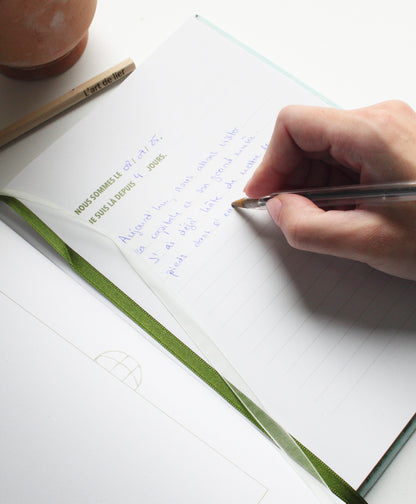 L'art de lier
NOUS SOMMES LE 09/07/25.
JE SUIS LÀ DEPUIS 4 JOURS.
Aujourd'hui, nous allons visiter
la capitale et son grand
J'ai déjà hâte de mettre
pieds dans